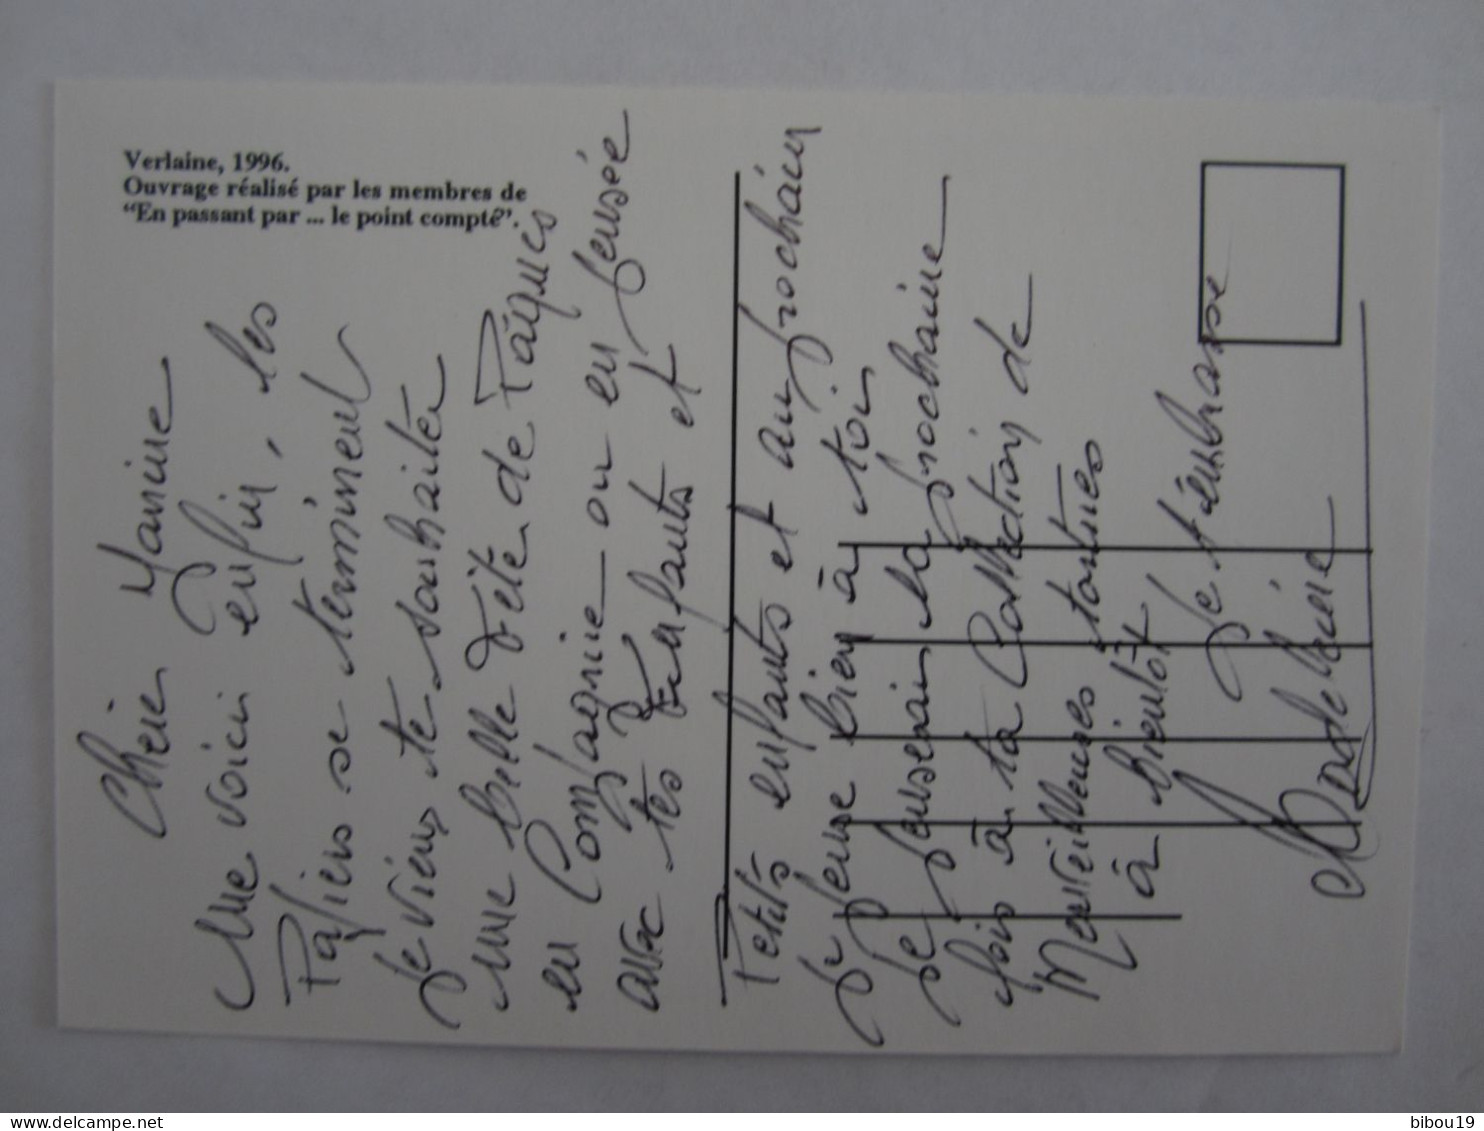 Verlaine, 1996.
Ouvrage réalisé par les membres de
"En passant par ... le point compté".
Chère Yanine
Me voici enfin, les
Papiers se terminent
Je viens te souhaiter
une belle Fête de Pâques
en Compagnie ou en pensée
avec tes Enfants et
Petits enfants et au prochain
Je pense bien à toi
Je penserai la prochaine
fois à ta Collection de
Merveilleuses tortues
à bientôt
Je t'embrasse
bibou19
delcampe.net